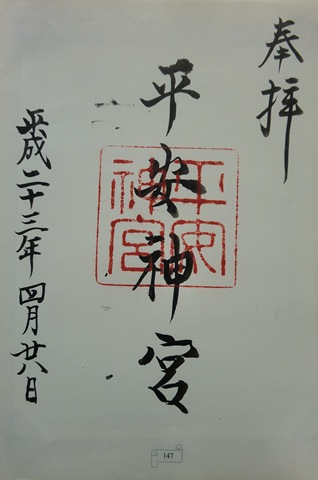 奉拝
平安神宮
平安神宮
平成二十三年四月廿八日
147